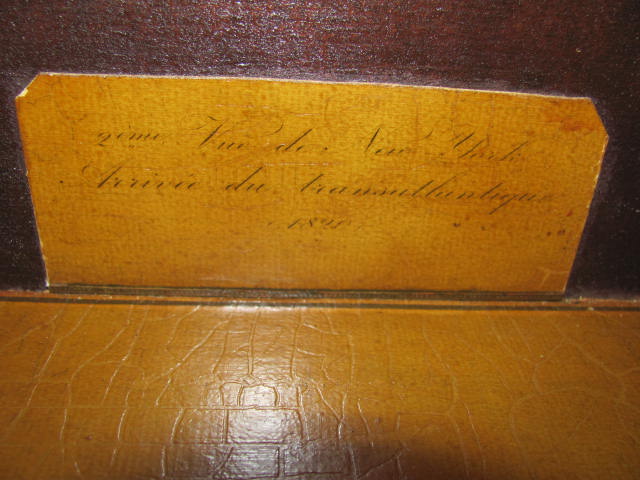 2ème Vue de New York
Arrivée du transathlantique